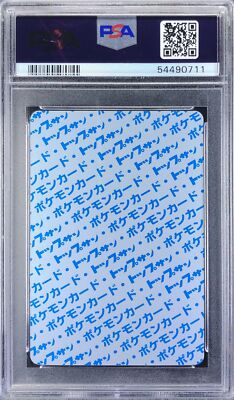 PSA
54490711
トップサン・ポケモンカード
ポケモンカード・トップサン
トップサン・ポケモンカード
ポケモンカード・トップサン
トップサン・ポケモンカード
ポケモンカード・トップサン
トップサン・ポケモンカード
ポケモンカード・トップサン